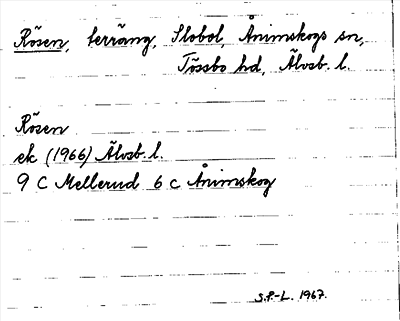 Rösen, terräng, Slobol, Ånimskogs sn,
Tössbo hd, Älvsb. l.
Rösen
ek (1966) Älvsb. l.
9 C Mellerud 6 c Ånimskog
S.F-L. 1967.